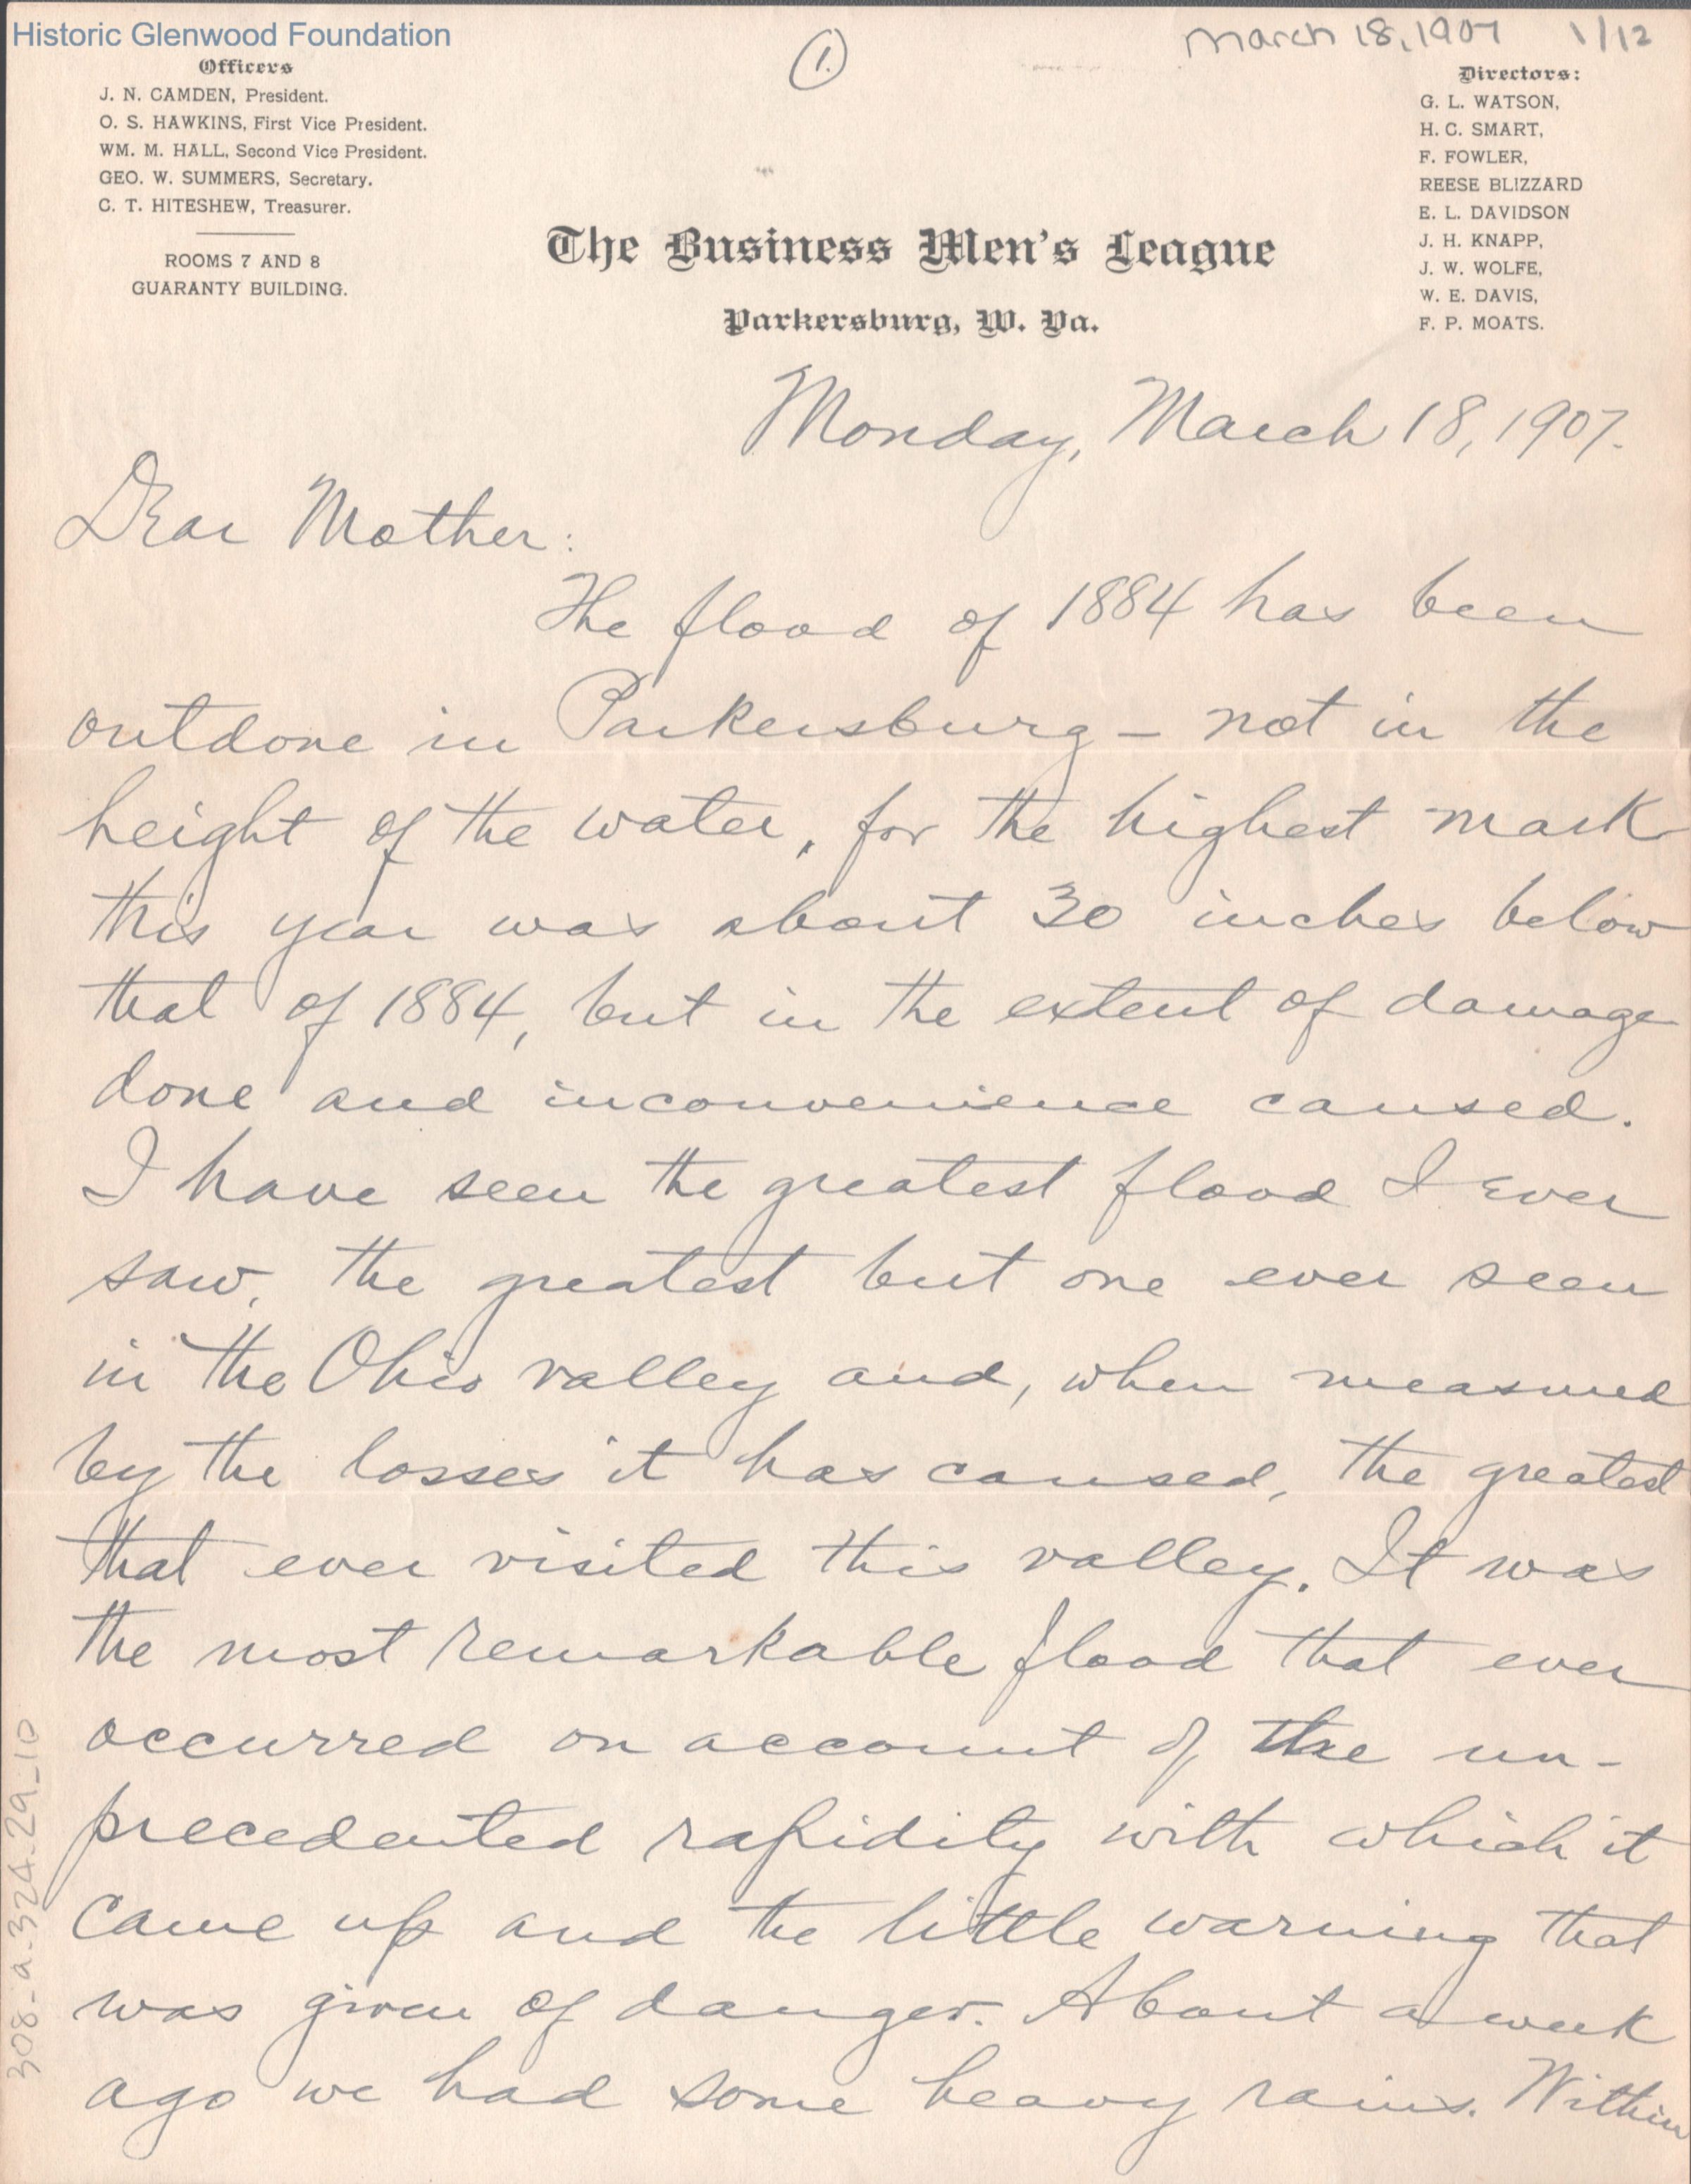 Historic Glenwood Foundation
March 18, 1907 1/12
1.
Officers
J. N. CAMDEN, President.
O. S. HAWKINS, First Vice President.
WM. M. HALL, Second Vice President.
GEO. W. SUMMERS, Secretary.
C. T. HITESHEW, Treasurer.
ROOMS 7 AND 8
GUARANTY BUILDING.
Directors:
G. L. WATSON,
H. C. SMART,
F. FOWLER,
REESE BLIZZARD
E. L. DAVIDSON
J. H. KNAPP,
J. W. WOLFE,
W. E. DAVIS,
F. P. MOATS.
The Business Men's League
Parkersburg, W. Va.
Monday, March 18, 1907.
Dear Mother:
The flood of 1884 has been
outdone in Parkersburg – not in the
height of the water, for the highest mark
this year was about 30 inches below
that of 1884, but in the extent of damage
done and inconvenience caused.
I have seen the greatest flood I ever
saw, the greatest but one ever seen
in the Ohio valley and, when measured
by the losses it has caused, the greatest
that ever visited this valley. It was
the most remarkable flood that ever
occurred on account of the un-
precedented rapidity with which it
came up and the little warning that
was given of danger. About a week
ago we had some heavy rains. Within
308_a.324.29_10